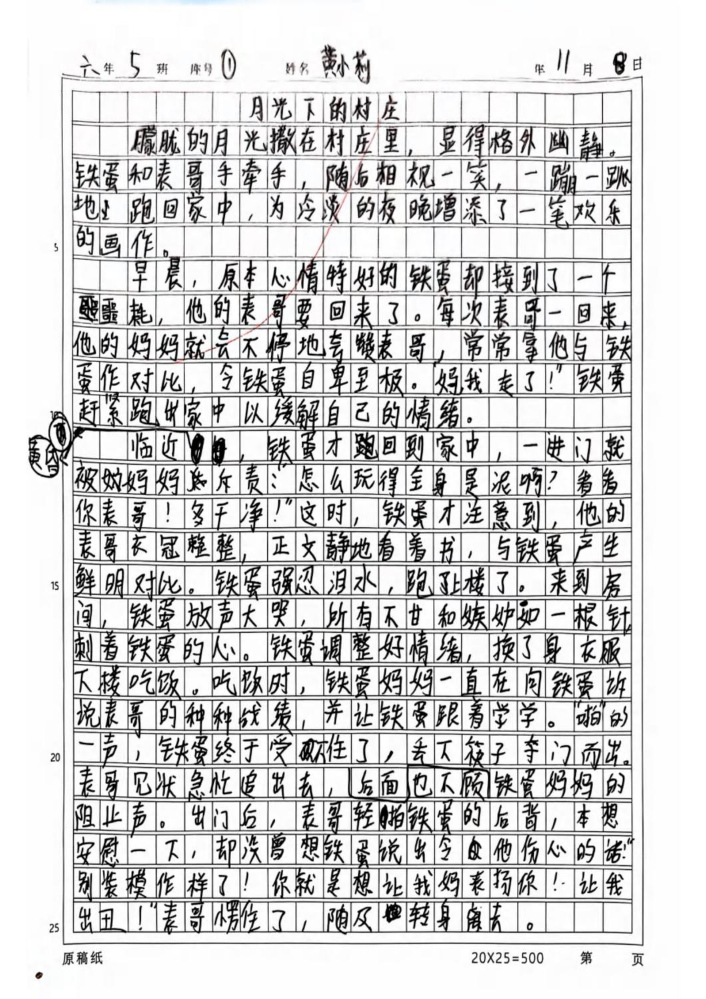 六年5班 座号① 姓名 黄小莉 年11月8日
月光下的村庄
朦胧的月光撒在村庄里，显得格外幽静。
铁蛋和表哥手牵手，随后相视一笑，一蹦一跳
地跑回家中，为冷淡的夜晚增添了一笔欢乐
的画作。
5
早晨，原本心情特好的铁蛋却接到了一个
噩耗，他的表哥要回来了。每次表哥一回来，
他的妈妈就会不停地夸赞表哥，常常拿他与铁
蛋作对比，令铁蛋自卑至极。“妈我走了！”铁蛋
赶紧跑出家中以缓解自己的情绪。
临近，铁蛋才跑回到家中，一进门就
被妈妈斥责：“怎么玩得全身是泥啊？看看
你表哥！多干净！”这时，铁蛋才注意到，他的
表哥衣冠整整，正文静地看着书，与铁蛋产生
15
鲜明对比。铁蛋强忍泪水，跑上楼了。来到房
间，铁蛋放声大哭，所有不甘和嫉妒如一根针，
刺着铁蛋的心。铁蛋调整好情绪，换了身衣服
下楼吃饭。吃饭时，铁蛋妈妈一直在向铁蛋诉
说表哥的种种战绩，并让铁蛋跟着学学。“啪”的
20
一声，铁蛋终于受不住了，丢下筷子夺门而出。
表哥见状急忙追出去，后面也不顾铁蛋妈妈的
阻止声。出门后，表哥轻拍铁蛋的后背，本想
安慰一下，却没曾想铁蛋说出令他伤心的话：“
别装模作样了！你就是想让我妈表扬你！让我
25
出丑！”表哥愣住了，随及转身离去。
原稿纸 20X25=500 第 页